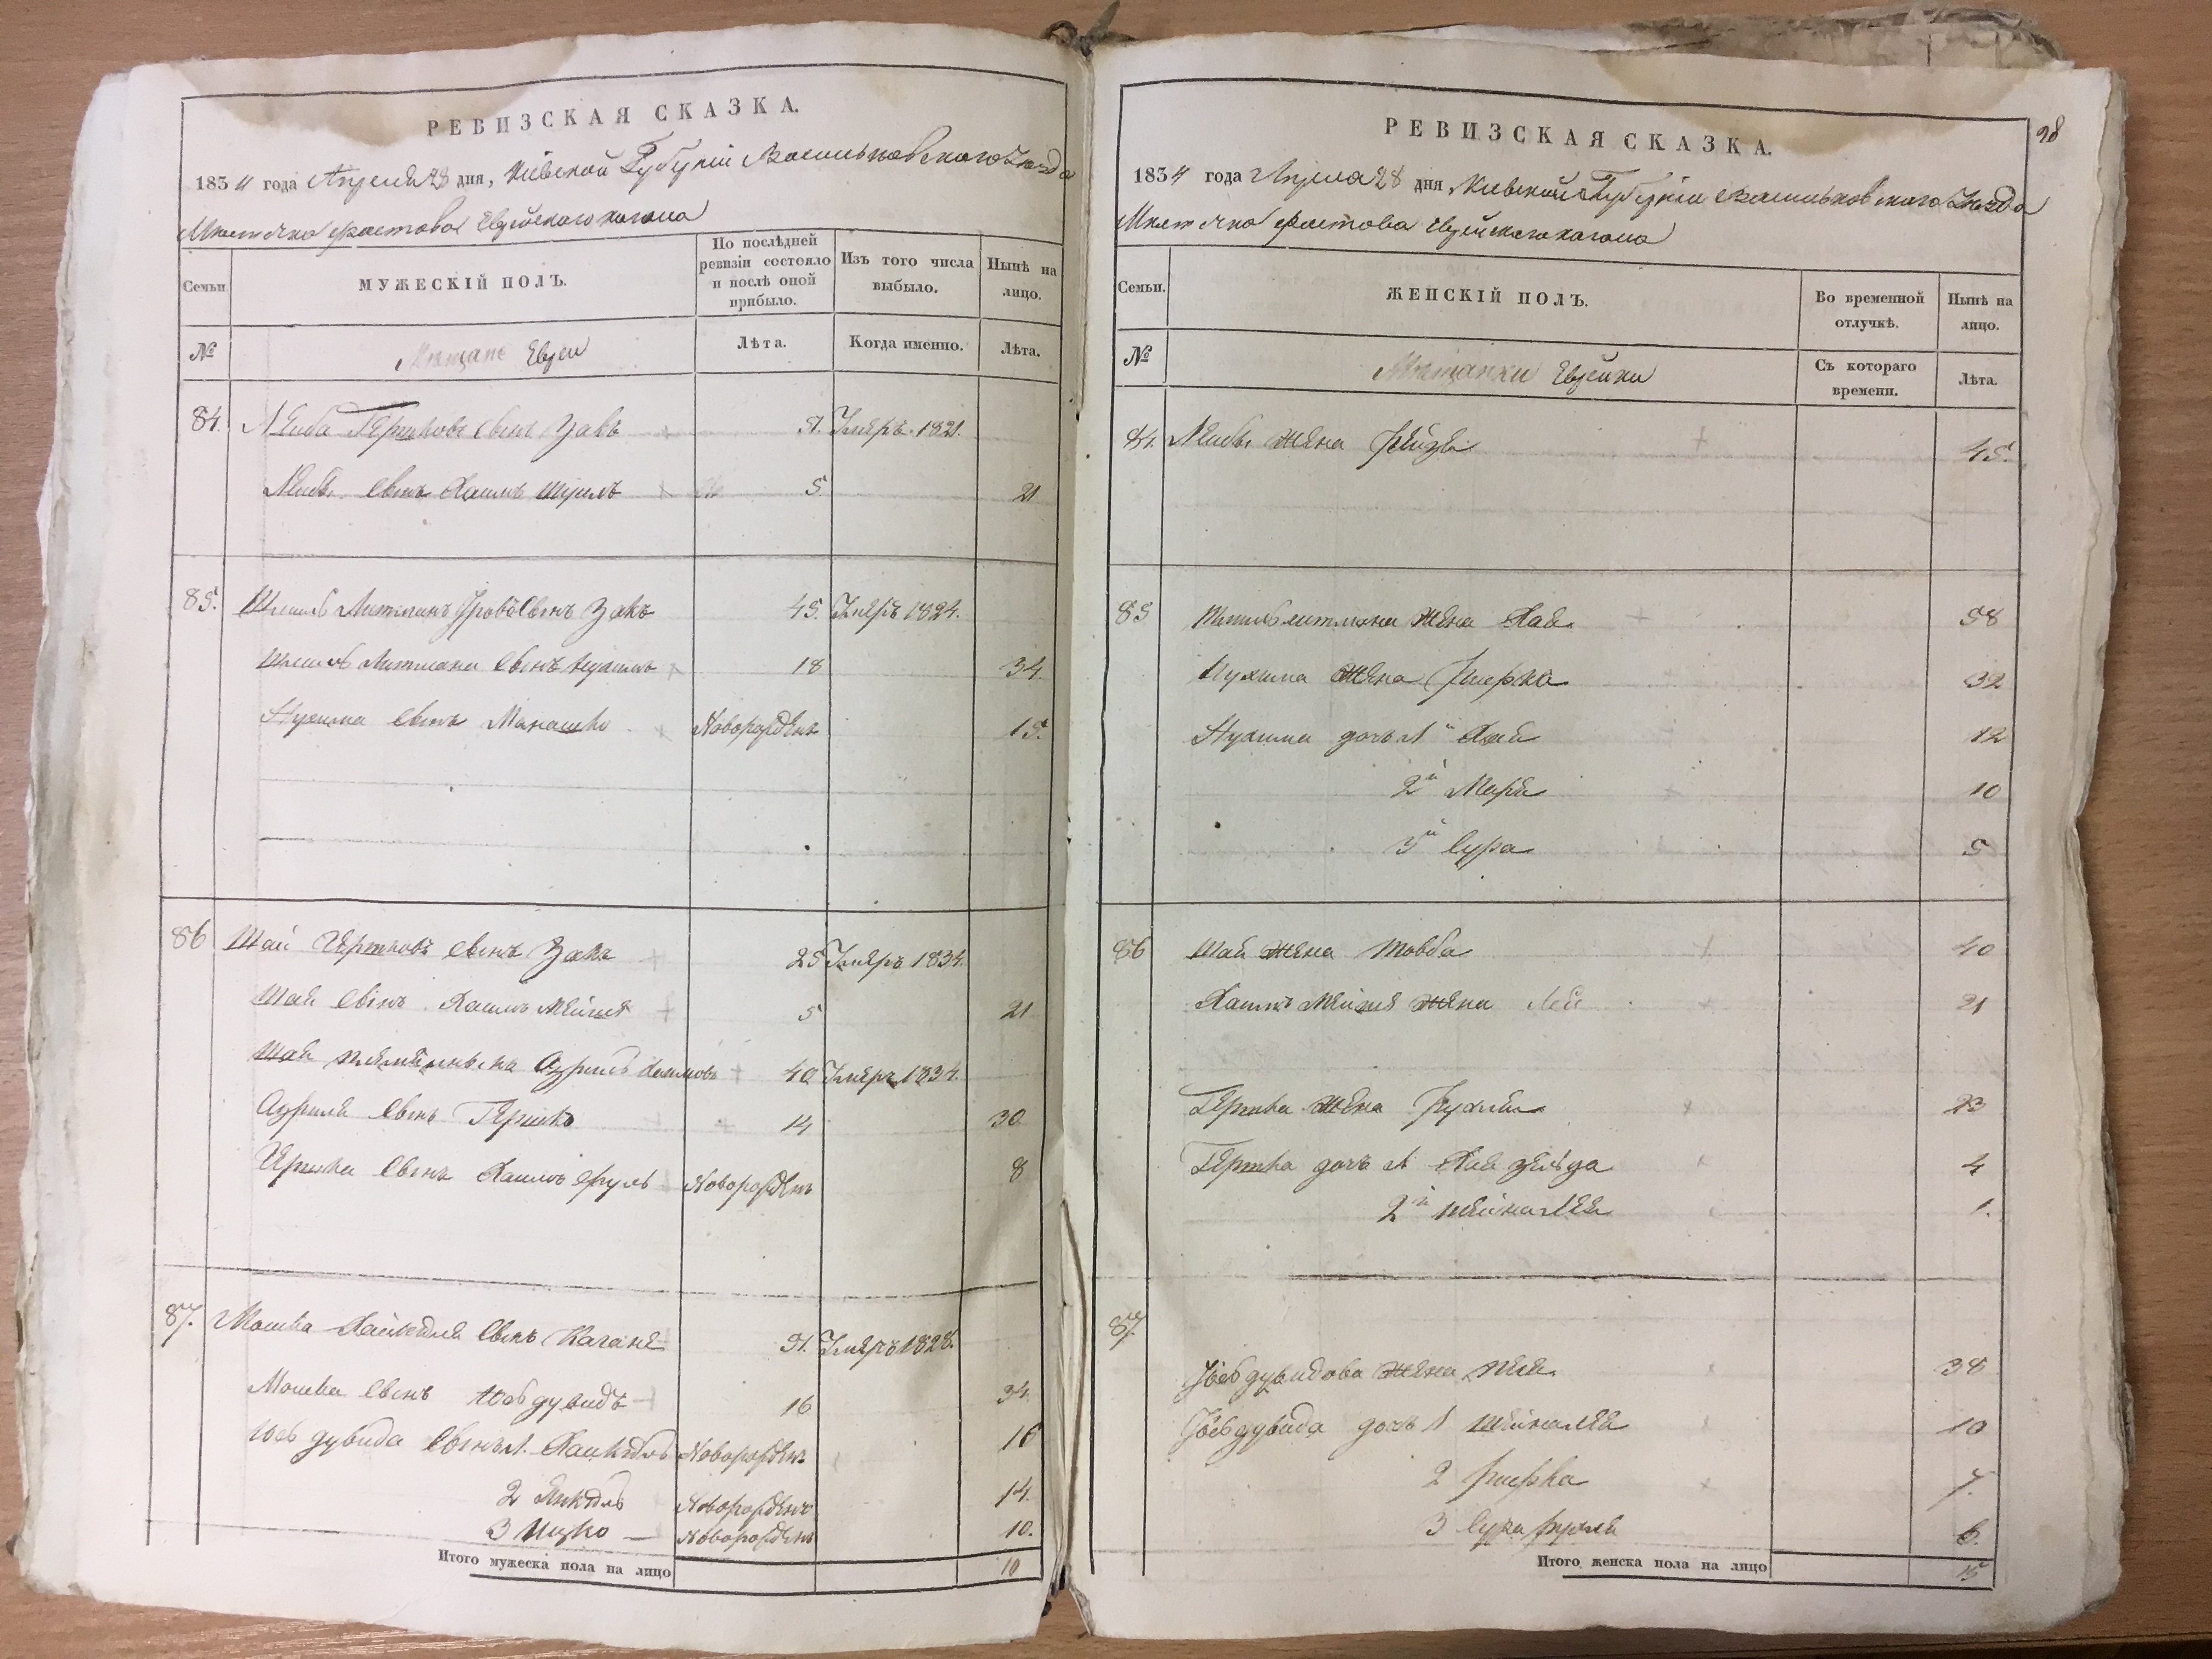 РЕВИЗСКАЯ СКАЗКА.
1834 года Апреля 28 дня, Кіевской Губерніи Васильковскаго Уезда
Местечка Фастова Еврейскаго кагала
Семьи.
МУЖЕСКІЙ ПОЛЪ.
По послѣдней ревизіи состояло и послѣ оной прибыло.
Изъ того числа выбыло.
Нынѣ на лицо.
№
Мещане Евреи
Лѣта.
Когда именно.
Лѣта.
84. Лейба Гершковъ сынъ Закъ Умеръ 1821.
Лейбы сынъ Хаимъ Шмуль 5 21
85. Шмуль Литманъ сынъ Закъ 45. Умеръ 1824.
Шмуль Литмана сынъ Нухимъ 18 34
Нухима сынъ Манашко Новорожденъ 15.
86 Шая Гершковъ сынъ Закъ 25 Умеръ 1834.
Шая сынъ Хаимъ Мейше 5 21
Шая Азриль Хаимовъ 40 Умеръ 1834.
Азриля сынъ Гершко 14 30
Гершка сынъ Хаимъ Сруль Новорожденъ 8
87. Мошка сынъ Кагане Умеръ 1828.
Мошка сынъ Іось Дувидъ 16 34
Іось Дувида сынъ 1. Новорожденъ 16
2 Янкель Новорожденъ 14.
3 Ицко Новорожденъ 10.
Итого мужеска пола на лицо 10
98
РЕВИЗСКАЯ СКАЗКА.
1834 года Апреля 28 дня, Кіевской Губерніи Васильковскаго Уезда
Местечка Фастова Еврейскаго кагала
Семьи.
ЖЕНСКІЙ ПОЛЪ.
Во временной отлучкѣ.
Нынѣ на лицо.
№
Мещанки Еврейки
Съ котораго времени.
Лѣта.
84. Лейбы жена Рейзя 45.
85 Шмуль Литмана жена Хая 58
Нухима жена Ривка 32
Нухима дочь 1я Хая 12
2я 10
3я Сура 5
86 Шая жена Товба 40
Хаимъ Мейше жена Лея 21
Гершка жена Рухля 23
Гершка дочь 1 Хая Зельда 4
2я Шейна Лея 1.
87.
Іось Дувидова жена 38
Іось Дувида дочь 1 Шейна Лея 10
2 Ривка 7.
3 Сура Рухля 6.
Итого женска пола на лицо 15